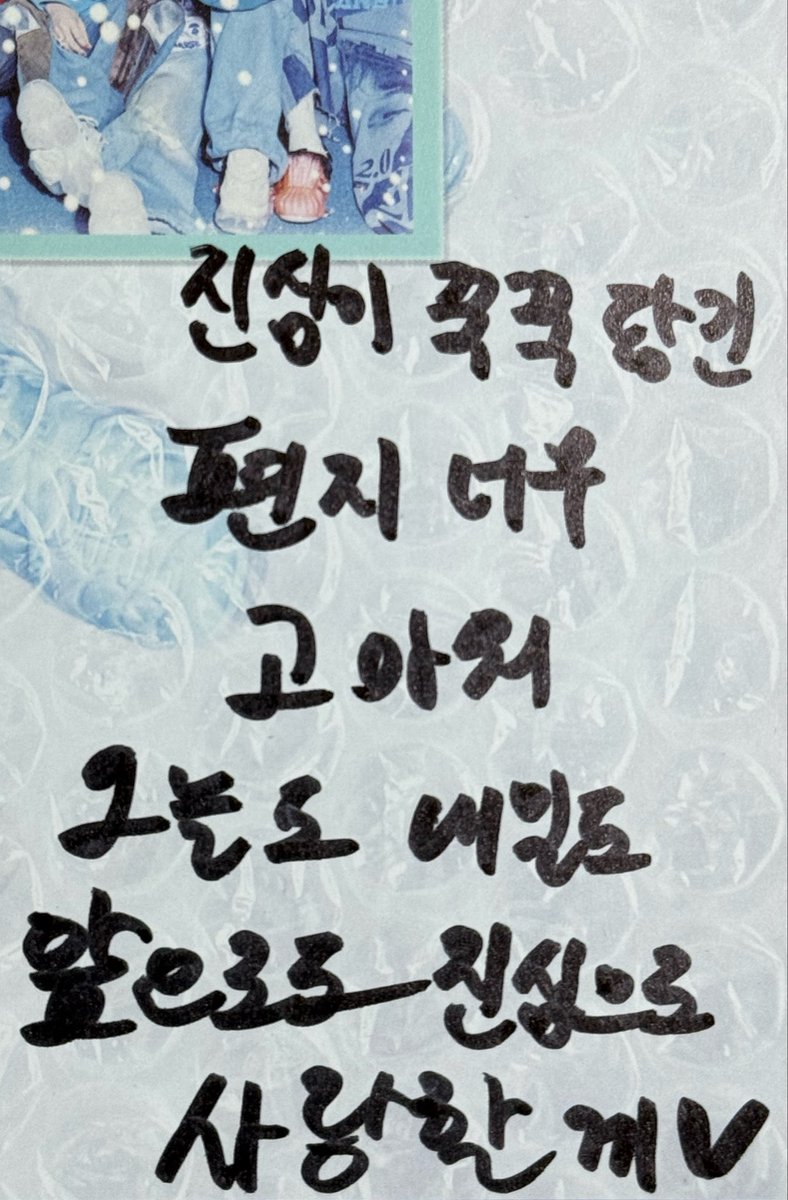 2.0
진심이 꾹꾹 담긴
편지 너무
고마워
오늘도 내일도
앞으로도 진심으로
사랑할께♡